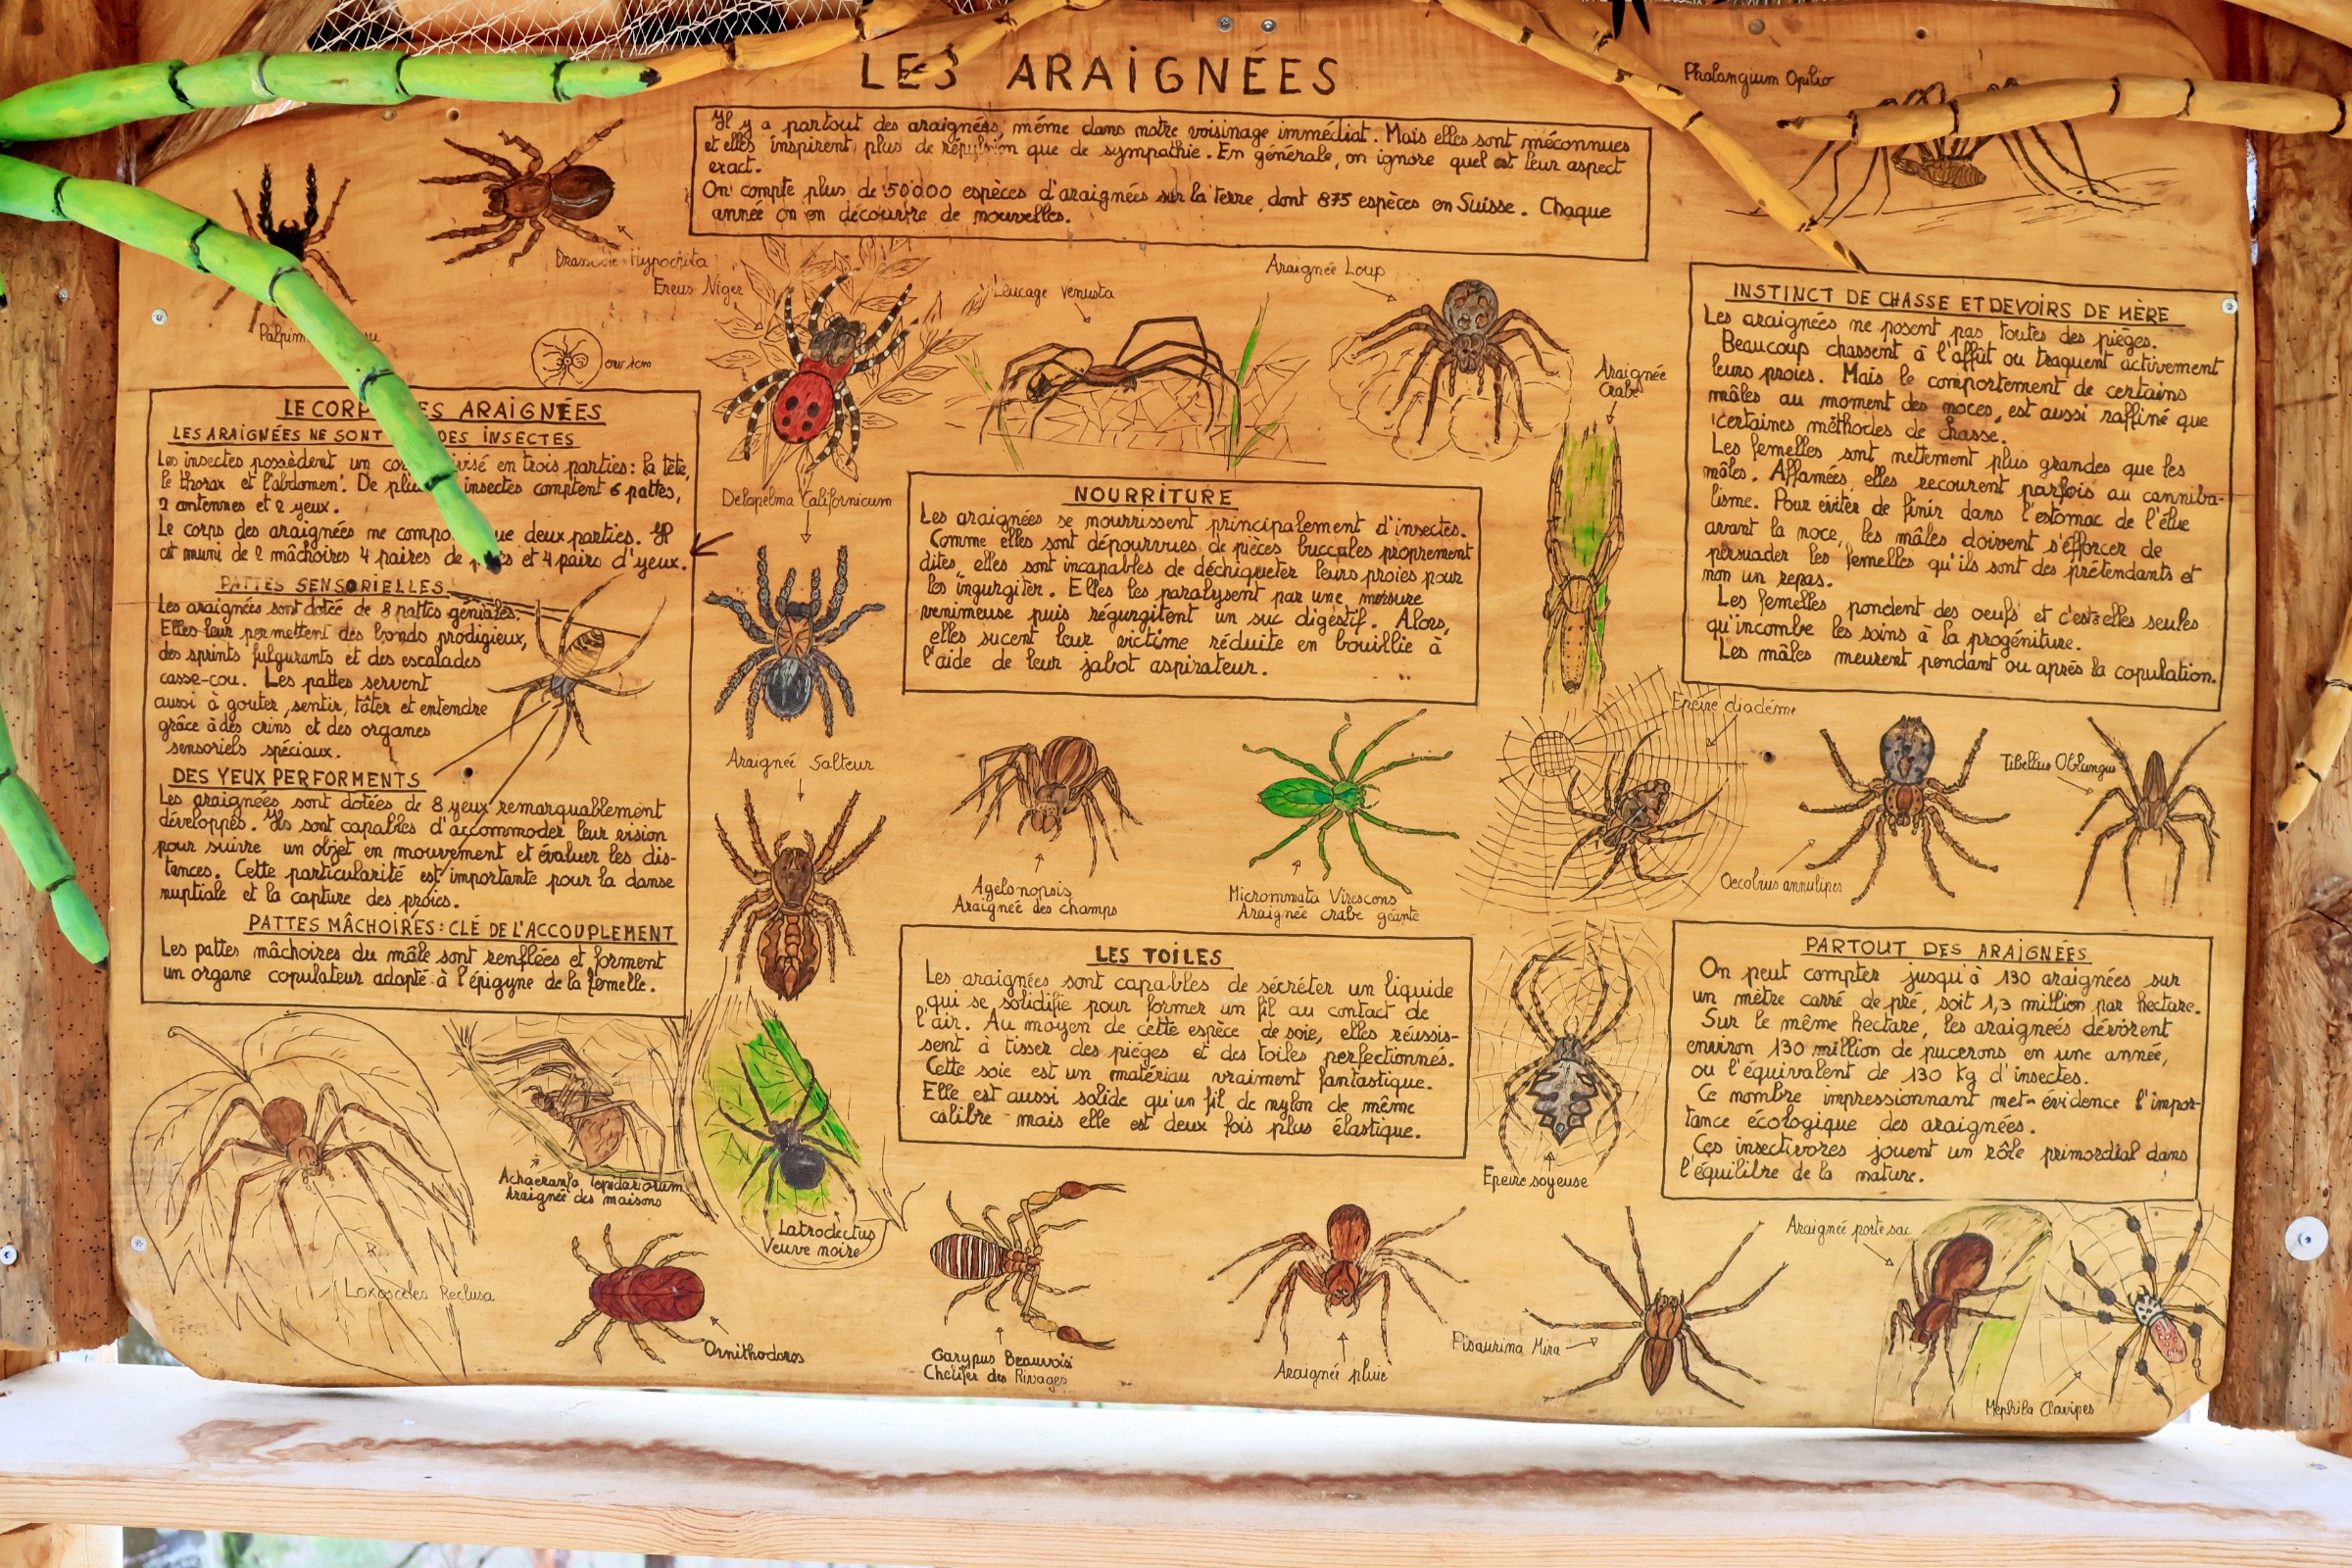 LES ARAIGNÉES
Il y a partout des araignées, même dans notre voisinage immédiat. Mais elles sont méconnues
et elles inspirent plus de répulsion que de sympathie. En générale, on ignore quel est leur aspect
exact.
On compte plus de 50'000 espèces d'araignées sur la terre, dont 875 espèces en Suisse. Chaque
année on en découvre de nouvelles.
Phalangium Opilio
Hypochita
Ereus Niger
Leucage Venusta
Araignée Loup
Araignée
Crabe
LE CORP ES ARAIGNÉES
LES ARAIGNÉES NE SONT DES INSECTES
Les insectes possèdent un co ivisé en trois parties: la tête,
le thorax et l'abdomen. De plu insectes comptent 6 pattes,
2 antennes et 2 yeux.
Le corps des araignées ne compo ue deux parties. Il
est muni de 2 mâchoires 4 paires de p es et 4 pairs d'yeux.
PATTES SENSORIELLES
Les araignées sont dotée de 8 pattes géniales.
Elles leur permettent des bonds prodigieux,
des sprints fulgurants et des escalades
casse-cou. Les pattes servent
aussi à gouter, sentir, tâter et entendre
grâce à des crins et des organes
sensoriels spéciaux.
DES YEUX PERFORMENTS
Les araignées sont dotées de 8 yeux remarquablement
développés. Ils sont capables d'accommoder leur vision
pour suivre un objet en mouvement et évaluer les dis-
tences. Cette particularité est importante pour la danse
nuptiale et la capture des proies.
PATTES MÂCHOIRES: CLÉ DE L'ACCOUPLEMENT
Les pattes mâchoires du mâle sont renflées et forment
un organe copulateur adapté à l'épigyne de la femelle.
Delopelma Californicum
Araigneé Salteur
NOURRITURE
Les araignées se nourrissent principalement d'insectes.
Comme elles sont dépourvues de pièces buccales proprement
dites, elles sont incapables de déchiqueter leurs proies pour
les ingurgiter. Elles les paralysent par une morsure
venimeuse puis régurgitent un suc digéstif. Alors,
elles sucent leur victime réduite en bouillie à
l'aide de leur jabot aspirateur.
INSTINCT DE CHASSE ET DEVOIRS DE MÈRE
Les araignées ne posent pas toutes des pièges.
Beaucoup chassent à l'affût ou traquent activement
leurs proies. Mais le comportement de certains
mâles au moment des noces, est aussi raffiné que
certaines méthodes de chasse.
Les femelles sont nettement plus grandes que les
mâles. Affamées, elles recourent parfois au canniba-
lisme. Pour éviter de finir dans l'estomac de l'élue
avant la noce, les mâles doivent s'éfforcer de
persuader les femelles qu'ils sont des prétendants et
non un repas.
Les femelles pondent des oeufs et c'est à elles seules
qu'incombe les soins à la progéniture.
Les mâles meurent pendant ou après la copulation.
Agelonopsis
Araigneé des champs
Micrommata Virescons
Araigneé crabe géante
Epeire diadème
Oecobius annulipes
Tibellus Oblungus
LES TOILES
Les araignées sont capables de sécréter un liquide
qui se solidifie pour former un fil au contact de
l'air. Au moyen de cette espèce de soie, elles réussis-
sent à tisser des pièges et des toiles perfectionnés.
Cette soie est un matériau vraiment fantastique.
Elle est aussi solide qu'un fil de nylon de même
calibre mais elle est deux fois plus élastique.
PARTOUT DES ARAIGNÉES
On peut compter jusqu'à 130 araignées sur
un mètre carré de pré, soit 1,3 million par hectare.
Sur le même hectare, les araigneés dévorent
environ 130 million de pucerons en une année,
ou l'équivalent de 130 Kg d'insectes.
Ce nombre impressionnant met-évidence l'impor-
tance écologique des araignées.
Ces insectivores jouent un rôle primordial dans
l'équilibre de la nature.
Epeire soyeuse
Tepidariorum
Araigneé des maisons
Latrodectus
Veuve noire
Loxosceles Reclusa
Ornithodoros
Garypus Beauvoisi
Chelifer des Rivages
Araigneé pluie
Pisaurina Mira
Araigneé porte sac
Mephila Clavipes